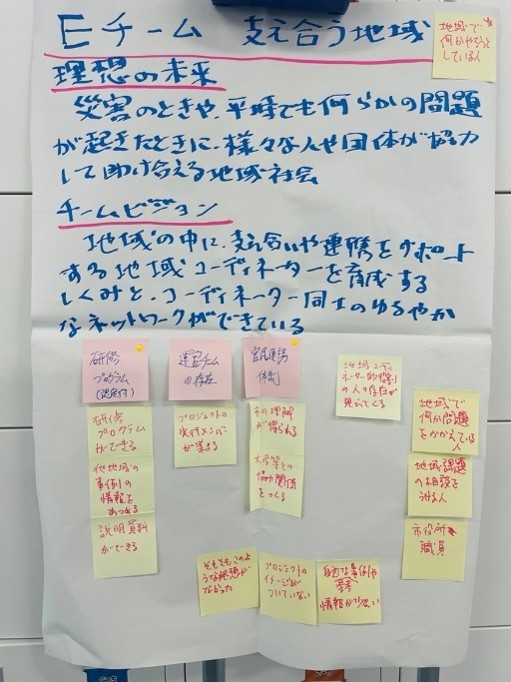 Eチーム 支え合う地域
地域で
何かやろうと
している人
理想の未来
災害のときや、平時でも何らかの問題
が起きたときに、様々な人や団体が協力
して助け合える地域社会
チームビジョン
地域の中に、支え合いや連携をサポート
する地域コーディネーターを育成する
しくみと、コーディネーター同士のゆるやか
なネットワークができている
研修
プログラム
(認定付)
運営チーム
の存在
官民連携
体制
地域コーディ
ネーター的役割
の人の存在が
見えてくる
研修
プログラム
ができる
他地域の
事例の
情報を
あつめる
説明資料
ができる
プロジェクトの
実行メンバーが
集まる
市の理解
が得られる
大学等との
協力関係
をつくる
地域で
何か問題
をかかえている
人
地域課題
の相談を
うける人
市役所
職員
そもそもこのよ
うな発想が
なかった
プロジェクトの
イメージが
ついていない
参考
情報が少ない